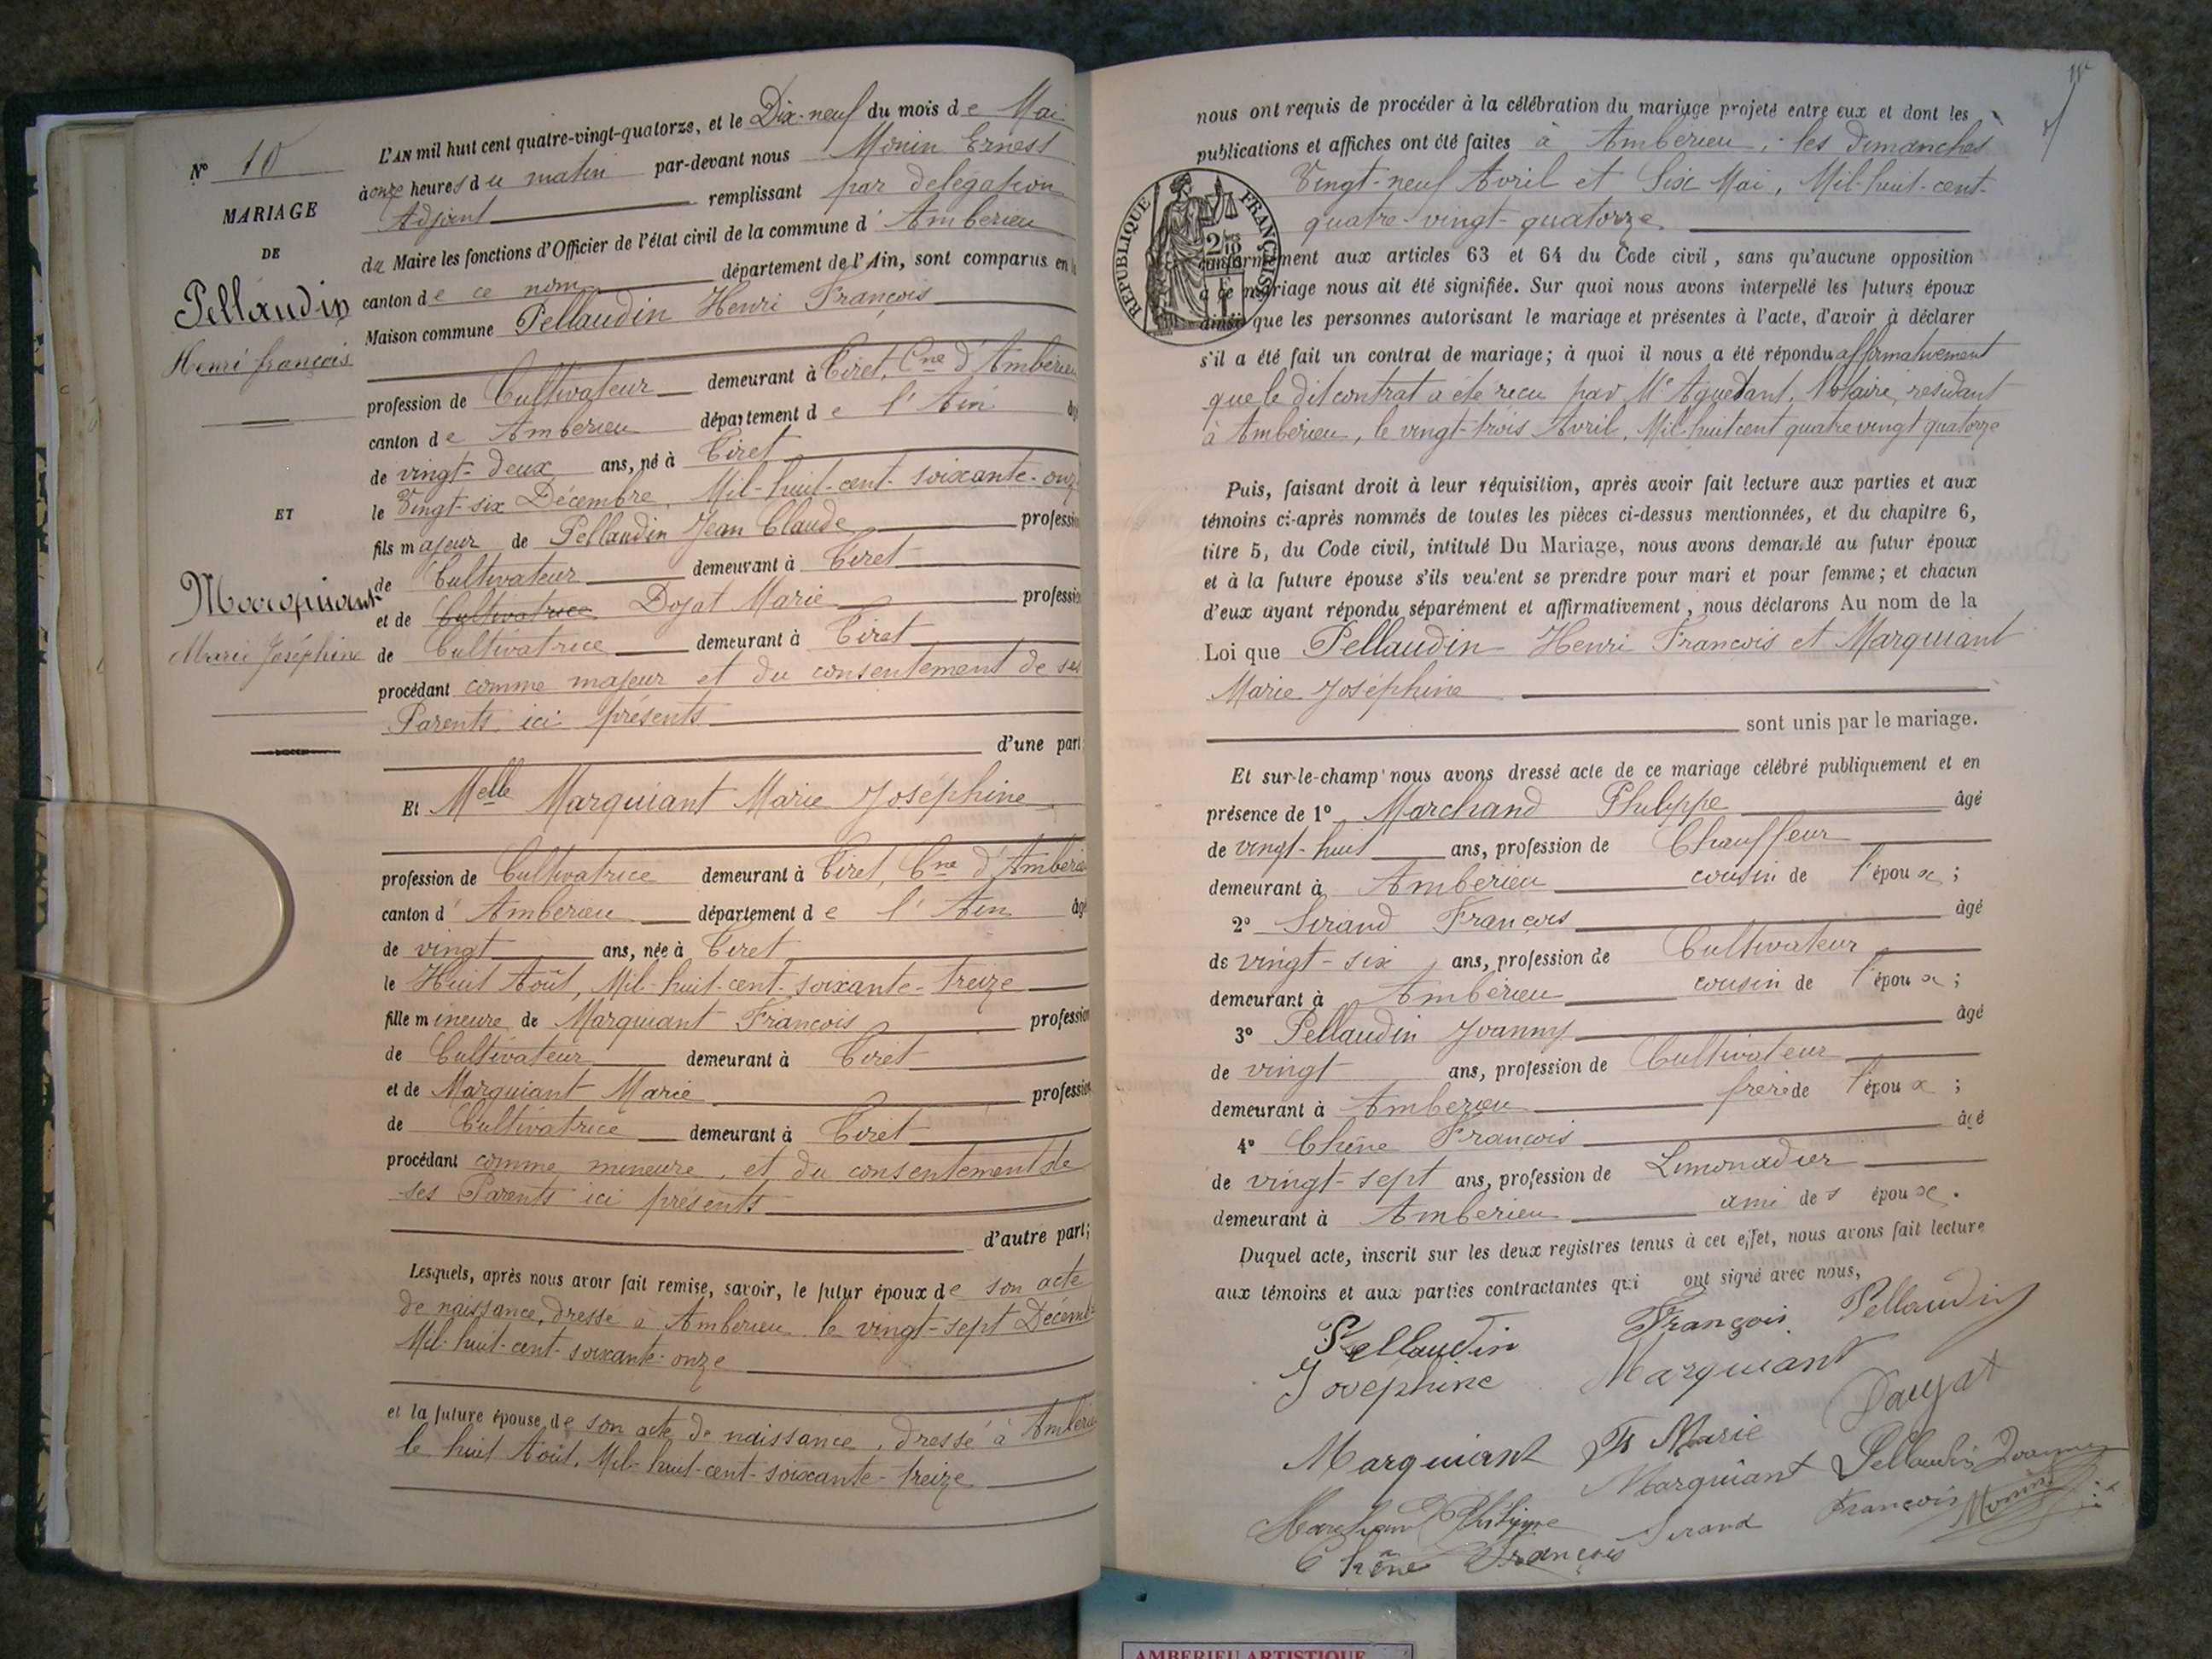 N° 10
MARIAGE
DE
Pellaudin
Henri françois
ET
Marquiant
Marie Joséphine
L'AN mil huit cent quatre-vingt-quatorze, et le Dix-neuf du mois de Mai
à onze heures du matin par-devant nous Monin Ernest
Adjoint remplissant par délégation
du Maire les fonctions d'Officier de l'état civil de la commune d'Ambérieu
canton de ce nom département de l'Ain, sont comparus en la
Maison commune Pellaudin Henri François
profession de Cultivateur demeurant à Tiret, Cne d'Ambérieu
canton de Ambérieu département de l'Ain âgé
de vingt-deux ans, né à Tiret
le Vingt-six Décembre, Mil-huit-cent-soixante-onze
fils majeur de Pellaudin Jean Claude profession
de Cultivateur demeurant à Tiret
et de Cultivatrice Dojat Marie profession
de Cultivatrice demeurant à Tiret
procédant comme majeur et du consentement de ses
Parents ici présents
d'une part;
Et Melle Marquiant Marie Joséphine
profession de Cultivatrice demeurant à Tiret, Cne d'Ambérieu
canton d'Ambérieu département de l'Ain âgé
de vingt ans, née à Tiret
le Huit Août, Mil-huit-cent-soixante-treize
fille mineure de Marquiant François profession
de Cultivateur demeurant à Tiret
et de Marquiant Marie profession
de Cultivatrice demeurant à Tiret
procédant comme mineure, et du consentement de
ses Parents ici présents
d'autre part;
Lesquels, après nous avoir fait remise, savoir, le futur époux de son acte
de naissance, dressé à Ambérieu le vingt-sept Décembre
Mil-huit-cent-soixante-onze
et la future épouse de son acte de naissance, dressé à Ambérieu
le huit Août, Mil-huit-cent-soixante-treize
nous ont requis de procéder à la célébration du mariage projeté entre eux et dont les
publications et affiches ont été faites à Ambérieu, les Dimanches
Vingt-neuf Avril et Six Mai, Mil-huit-cent-
quatre-vingt-quatorze
RÉPUBLIQUE FRANÇAISE
conformément aux articles 63 et 64 du Code civil, sans qu'aucune opposition
à ce mariage nous ait été signifiée. Sur quoi nous avons interpellé les futurs époux
ainsi que les personnes autorisant le mariage et présentes à l'acte, d'avoir à déclarer
s'il a été fait un contrat de mariage; à quoi il nous a été répondu affirmativement
que le dit contrat a été reçu par Me Aguétant, Notaire, résidant
à Ambérieu, le vingt-trois Avril, Mil huit cent quatre vingt quatorze
Puis, faisant droit à leur réquisition, après avoir fait lecture aux parties et aux
témoins ci-après nommés de toutes les pièces ci-dessus mentionnées, et du chapitre 6,
titre 5, du Code civil, intitulé Du Mariage, nous avons demandé au futur époux
et à la future épouse s'ils veulent se prendre pour mari et pour femme; et chacun
d'eux ayant répondu séparément et affirmativement, nous déclarons Au nom de la
Loi que Pellaudin Henri François et Marquiant
Marie Joséphine
sont unis par le mariage.
Et sur-le-champ nous avons dressé acte de ce mariage célébré publiquement et en
présence de 1° Marchand Philippe âgé
de vingt-huit ans, profession de Chauffeur
demeurant à Ambérieu cousin de l'époux;
2° Sirand François âgé
de vingt-six ans, profession de Cultivateur
demeurant à Ambérieu cousin de l'époux;
3° Pellaudin Joanny âgé
de vingt ans, profession de Cultivateur
demeurant à Ambérieu frère de l'époux;
4° Chêne François âgé
de vingt-sept ans, profession de Limonadier
demeurant à Ambérieu ami des époux.
Duquel acte, inscrit sur les deux registres tenus à cet effet, nous avons fait lecture
aux témoins et aux parties contractantes qui ont signé avec nous,
Pellaudin François Pellaudin
Josephine Marquiant Daujat
Marquiant Fs Marie
Marquiant Pellaudin Joanny
Marchand Philippe Sirand François Monin
Chêne François
AMBERIEU ARTISTIQUE